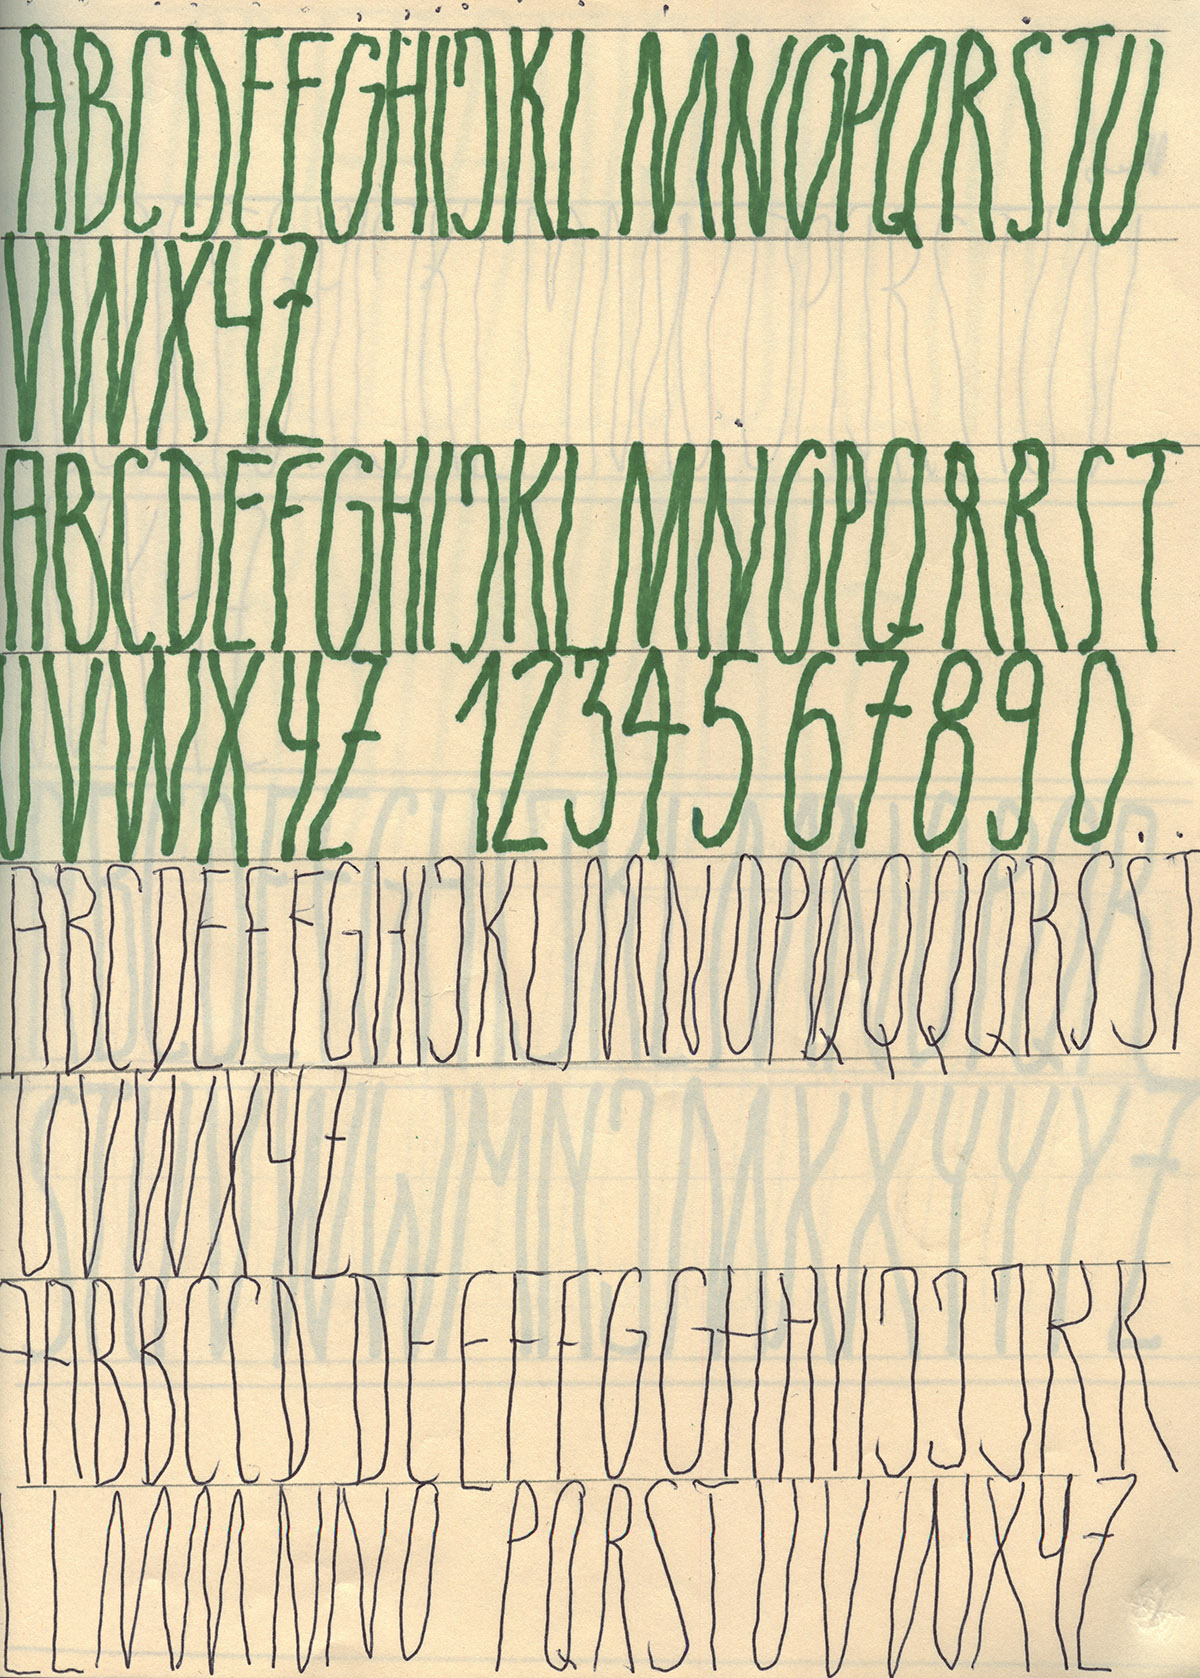 ABCDEFGHIJKL MNOPQRSTU
VWXYZ
ABCDEFGHIJKL MNOPQRRST
UVWXYZ 1234567890
ABCDEFFGHIJKLMNOPQQQQRSST
UVWXYZ
AABBCCDDEEFFGGHHIIJJJKK
LLMMNNO PQRSTUVWXYZ